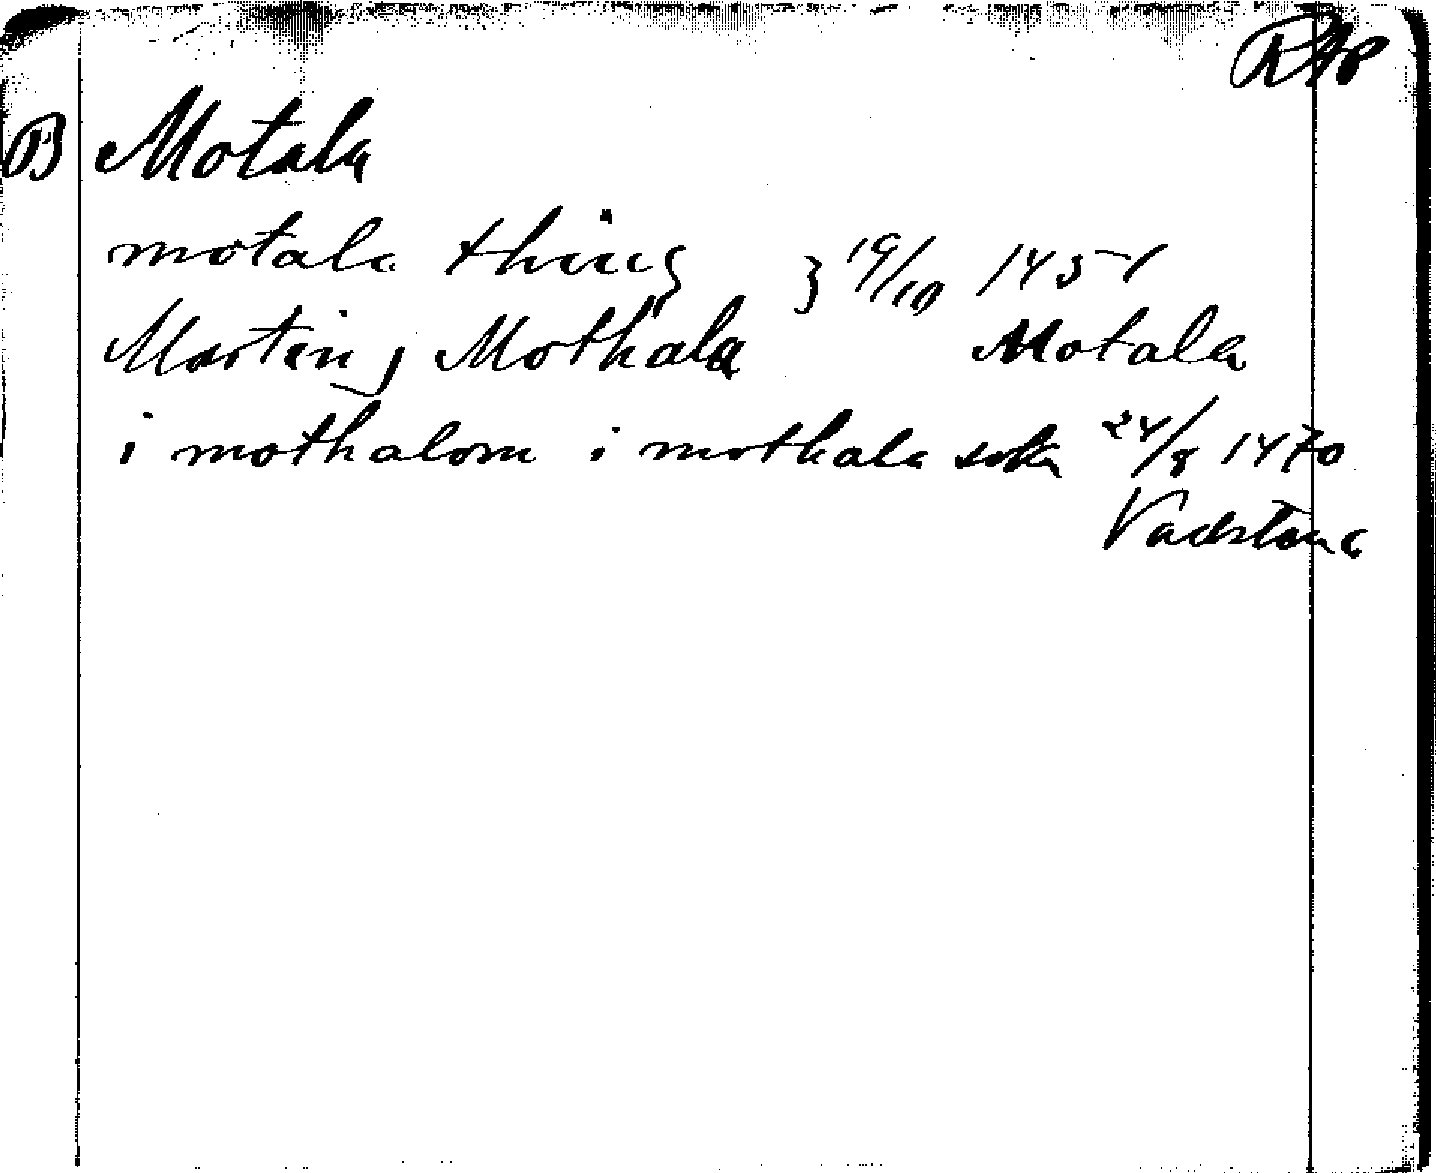 RAp
B Motala
motala thing } 19/10 1451
Martin j Mothala Motala
i mothalom i mothala sokn 24/8 1470
Vadstena